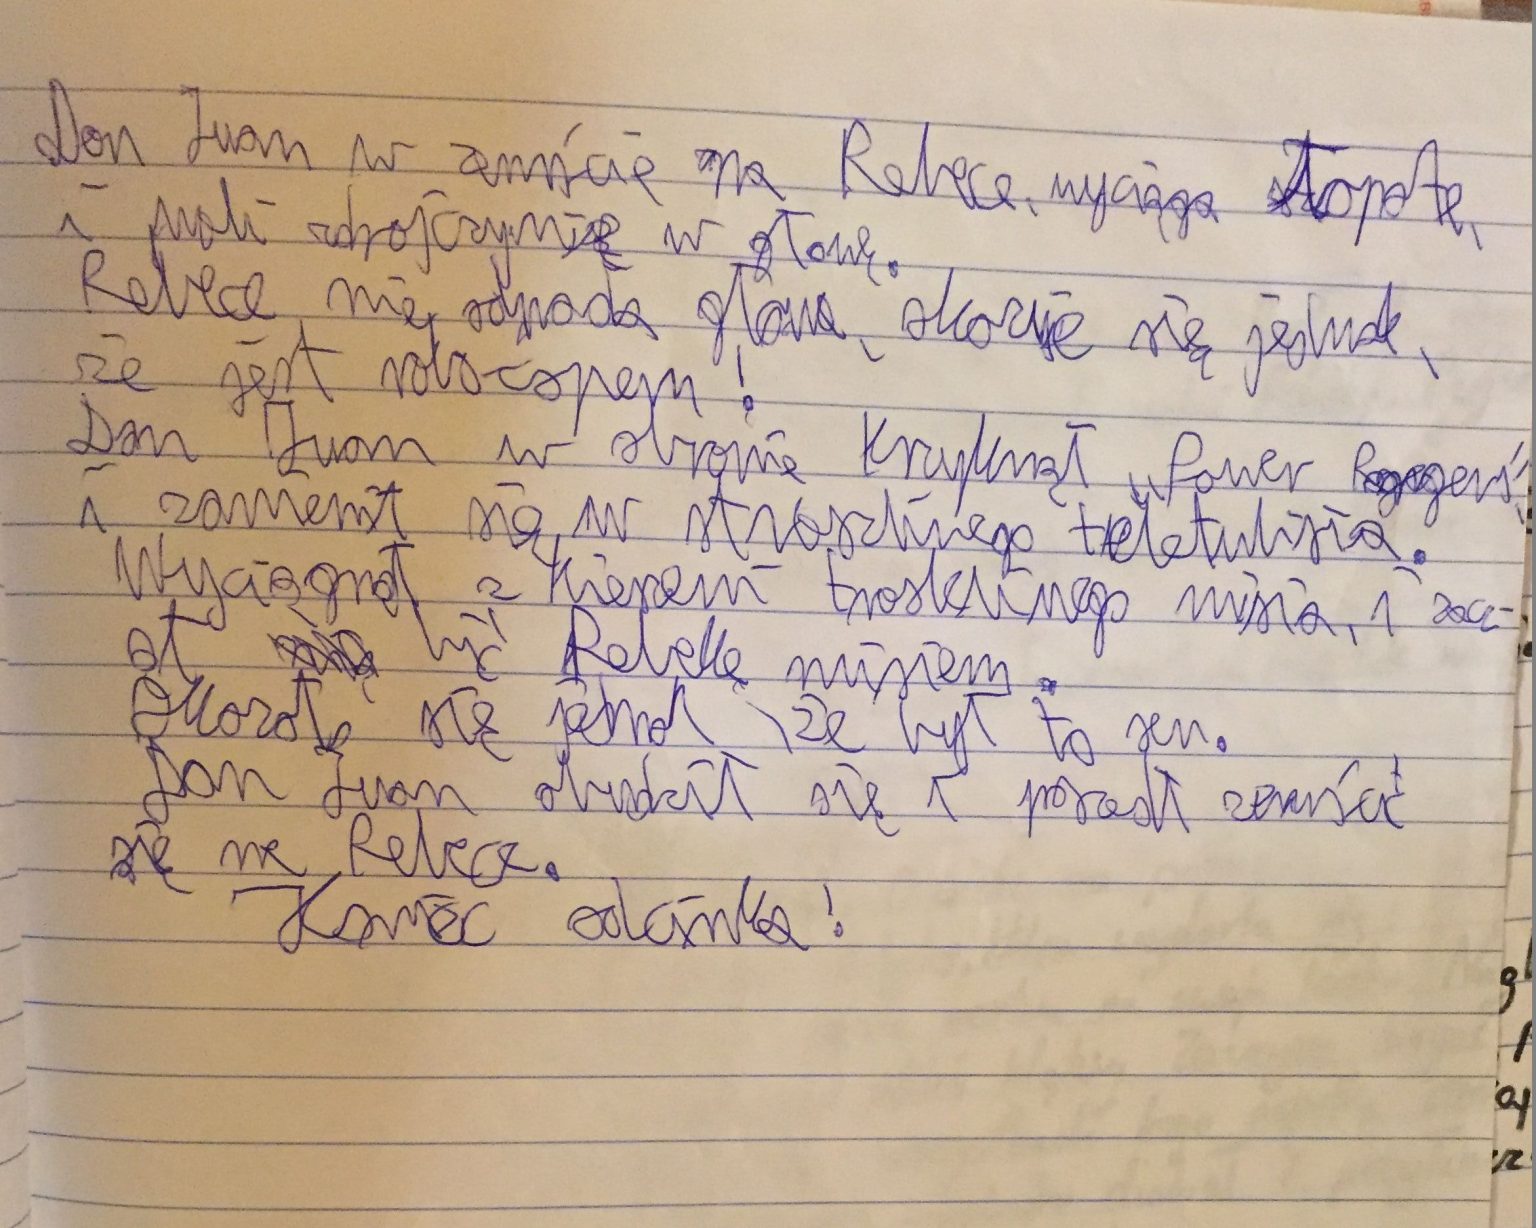 Don Juan w zemście na Rebece, wyciąga łopatę,
i wali zbrojczynię w głowę.
Rebece nie odpada głowa, okazuje się jednak,
że jest robo-copem!
Don Juan w obronie krzyknął "Power Rangers"
i zamienił się w straszliwego teletubisia.
Wyciągnął z kieszeni troskliwego misia, i zacz-
ął bić Rebekę misiem.
Okazało się jednak, że był to sen.
Don Juan obudził się i poszedł zemścić
się na Rebece.
Koniec odcinka!